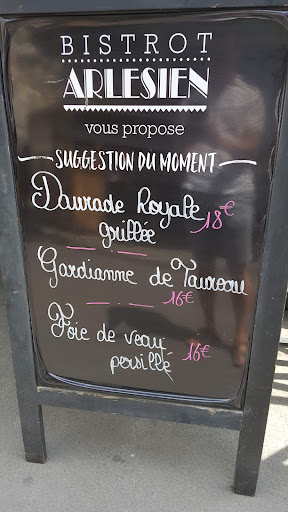 BISTROT
ARLESIEN
vous propose
SUGGESTION DU MOMENT
Daurade Royale
grillée 18€
Gardianne de Taureau
16€
Foie de veau
persillé 16€